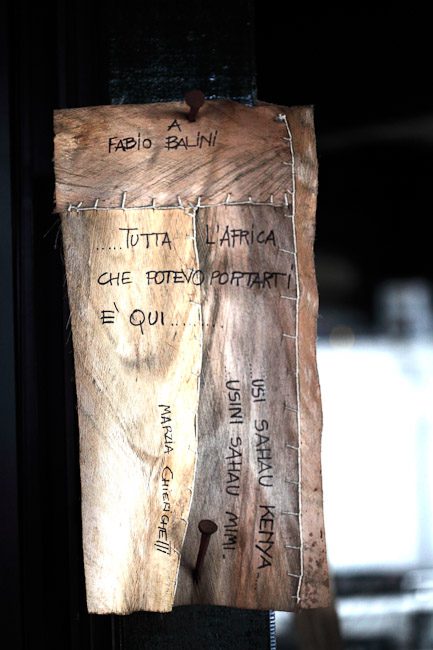 A
FABIO BALINI
.....TUTTA L'AFRICA
CHE POTEVO PORTARTI
E' QUI.........
...USI SAHAU KENYA...
...USINI SAHAU MIMI.
MARZIA